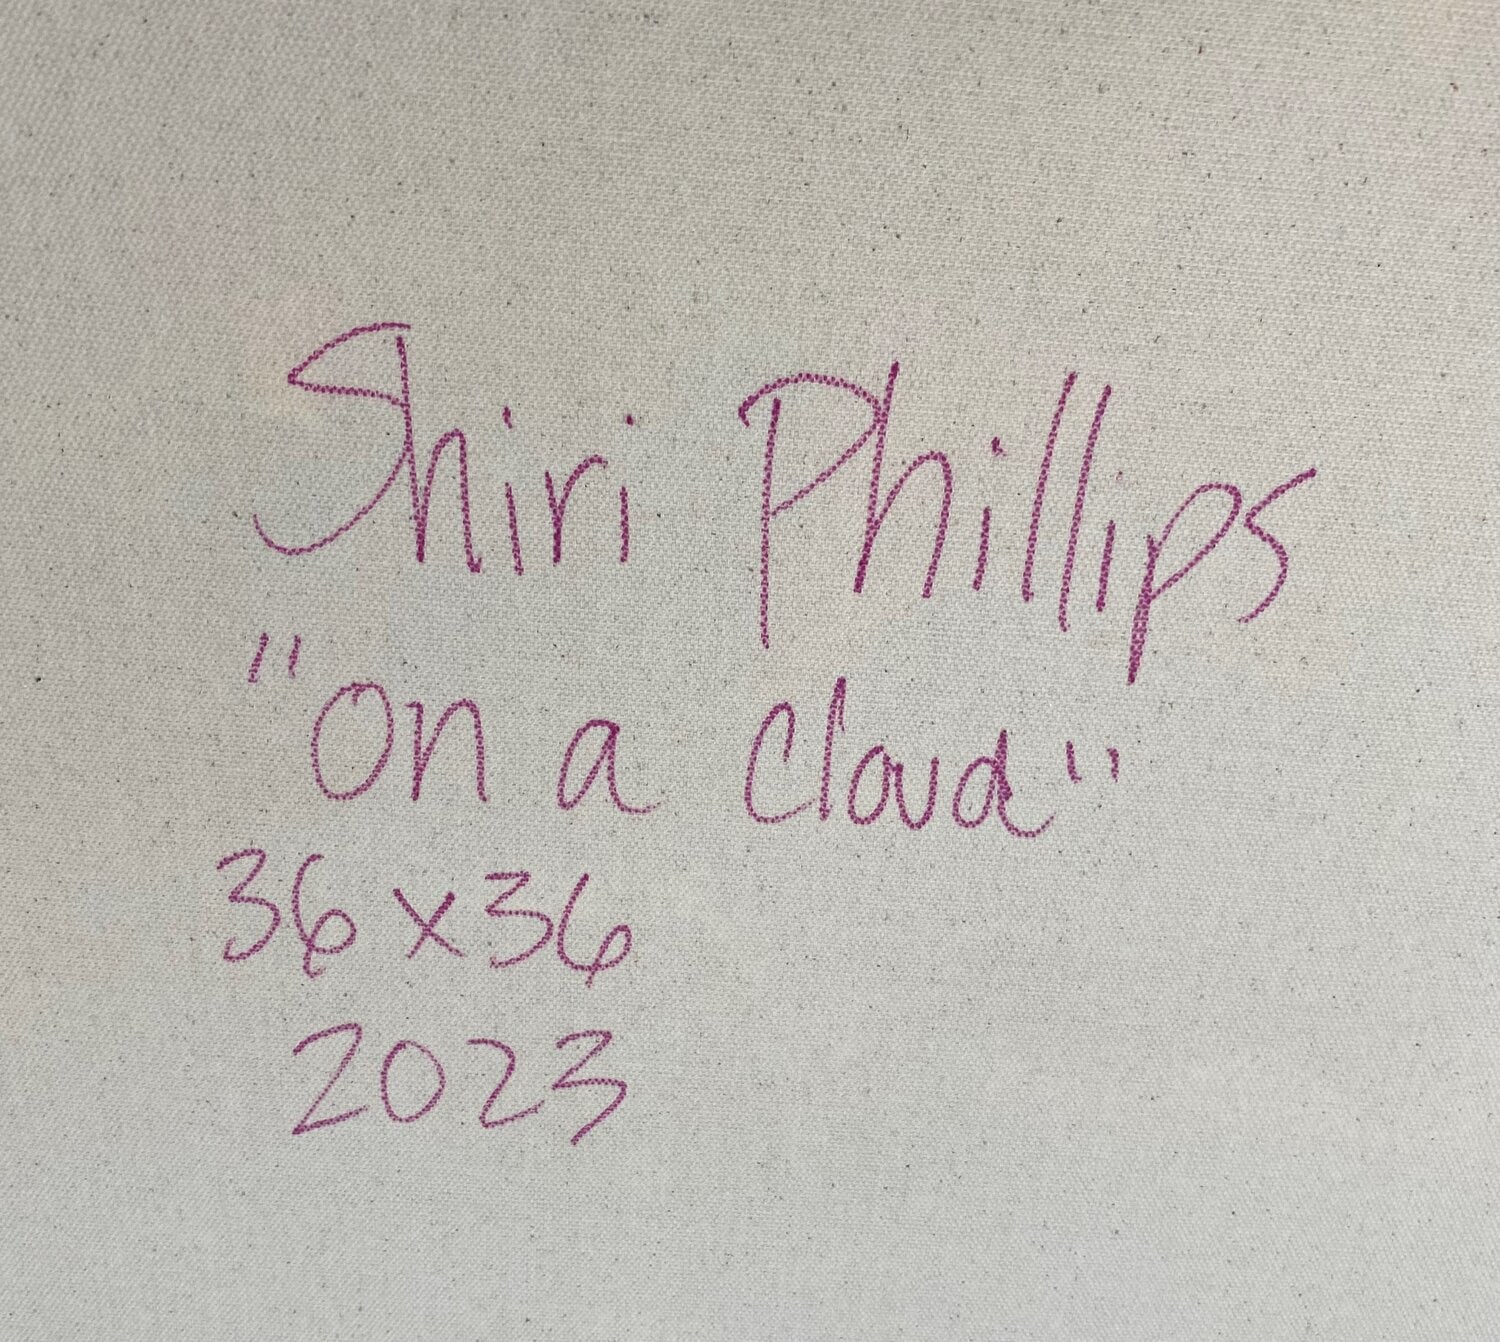 Shiri Phillips
"On a Cloud"
36 x 36
2023